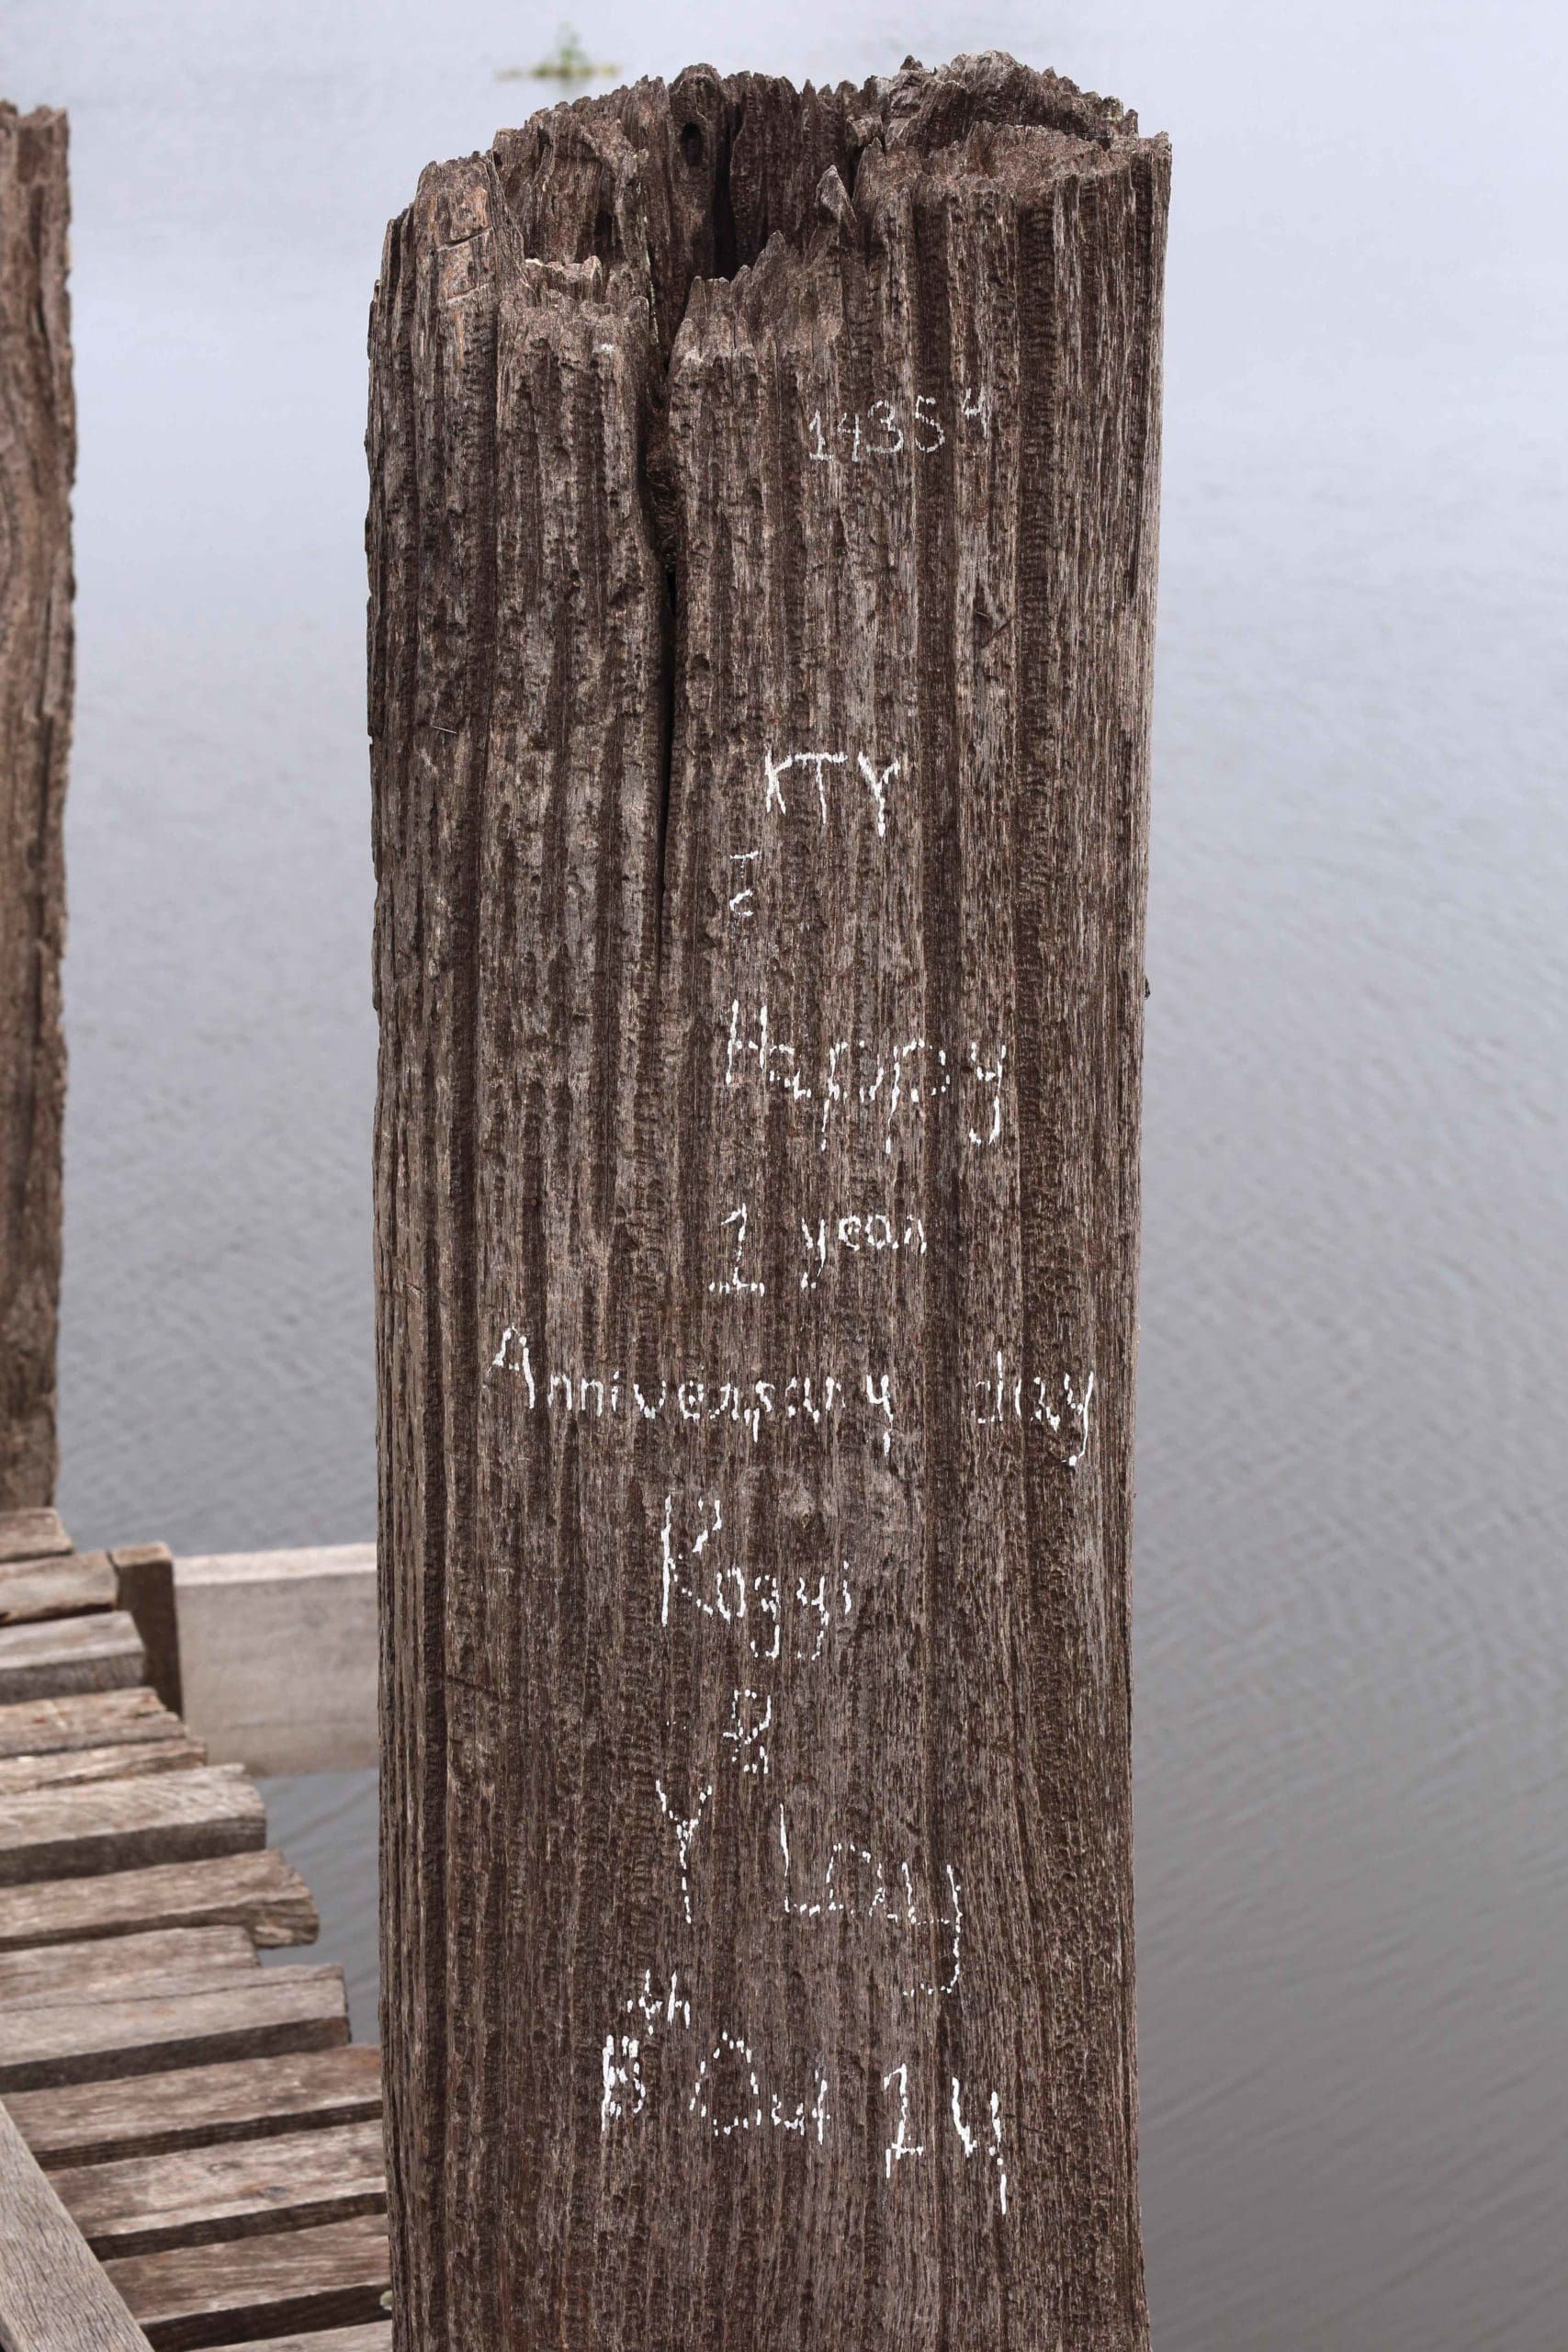 14354
KTY
Happy
1 year
Anniversary day
Kogyi
&
Y Lay
th
8 Oct 14